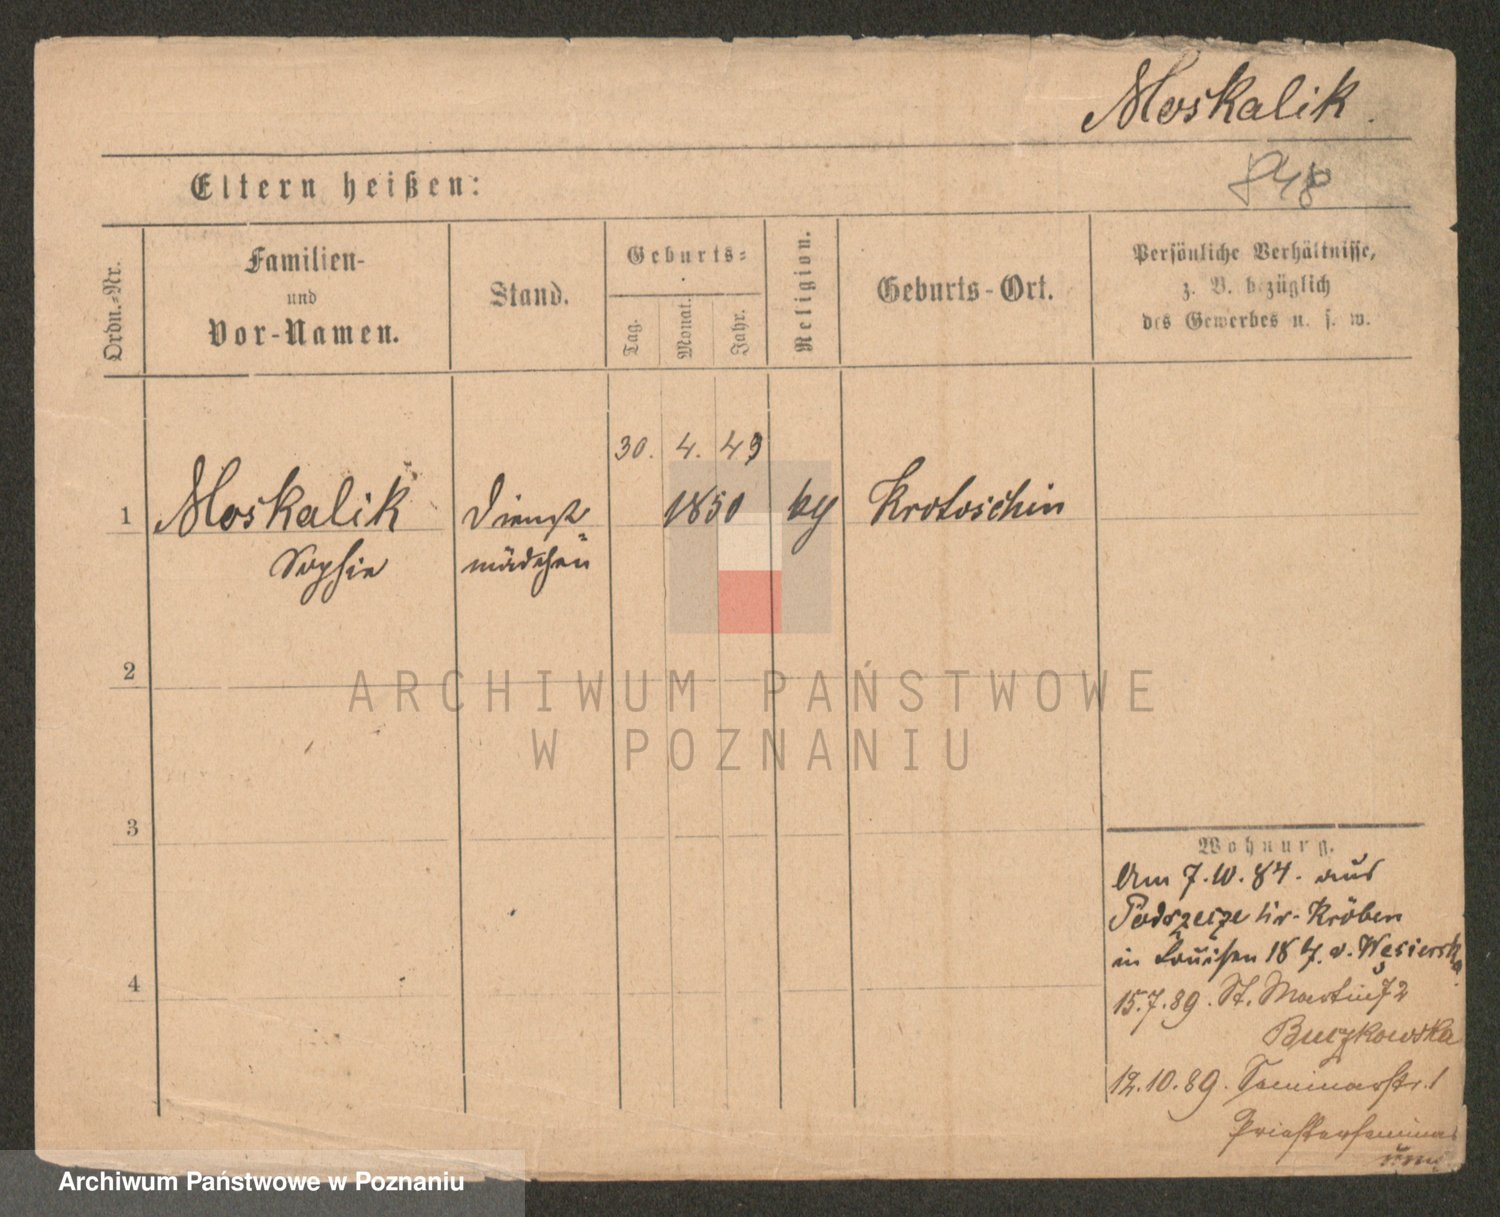 Moskalik.
848
Eltern heißen:
Ordn.-Nr.
Familien-
und
Vor-Namen.
Stand.
Geburts-
Tag.
Monat.
Jahr.
Religion.
Geburts-Ort.
Persönliche Verhältnisse,
z. B. bezüglich
des Gewerbes u. s. w.
30. 4. 49
1 Moskalik Dienst 1850 Krotoschin
Sophie mädchen
2
ARCHIWUM PAŃSTWOWE
W POZNANIU
3
4
Wohnung.
Am 7.10.84. aus
Kr. Kröben
in Louisen 18 b. v. Wesierska
15.7.89. St. Martin 72
Buczkowska
12.10.89. Seminarstr. 1
Priesterseminar
Archiwum Państwowe w Poznaniu